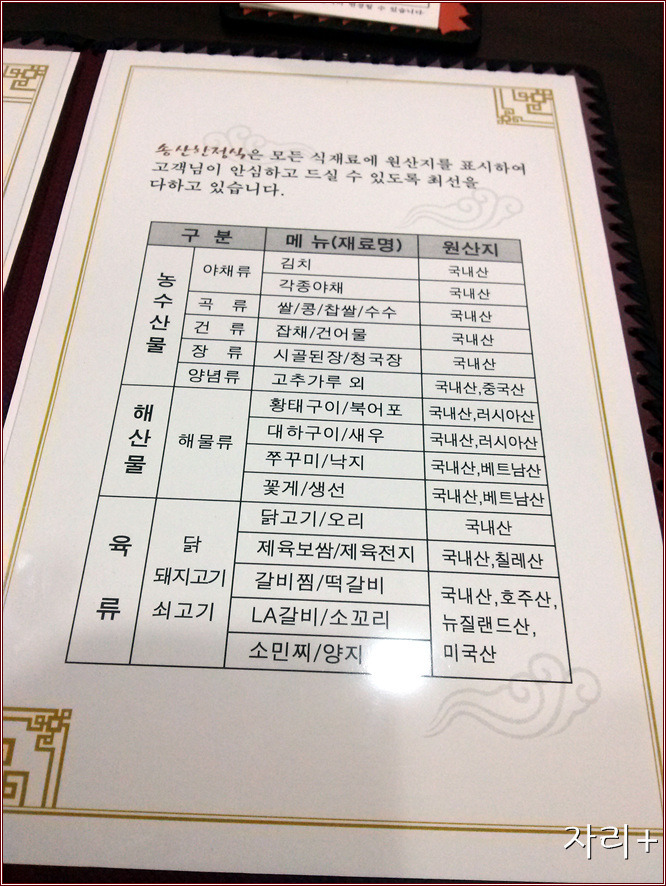 송산한정식은 모든 식재료에 원산지를 표시하여
고객님이 안심하고 드실 수 있도록 최선을
다하고 있습니다.
구 분 메 뉴(재료명) 원산지
농수산물 야채류 김치 국내산
각종야채 국내산
곡 류 쌀/콩/찹쌀/수수 국내산
건 류 잡채/건어물 국내산
장 류 시골된장/청국장 국내산
양념류 고추가루 외 국내산,중국산
해산물 해물류 황태구이/북어포 국내산,러시아산
대하구이/새우 국내산,러시아산
쭈꾸미/낙지 국내산,베트남산
꽃게/생선 국내산,베트남산
육류 닭 돼지고기 쇠고기 닭고기/오리 국내산
제육보쌈/제육전지 국내산,칠레산
갈비찜/떡갈비 국내산,호주산,
LA갈비/소꼬리 뉴질랜드산,
소민찌/양지 미국산
자리+